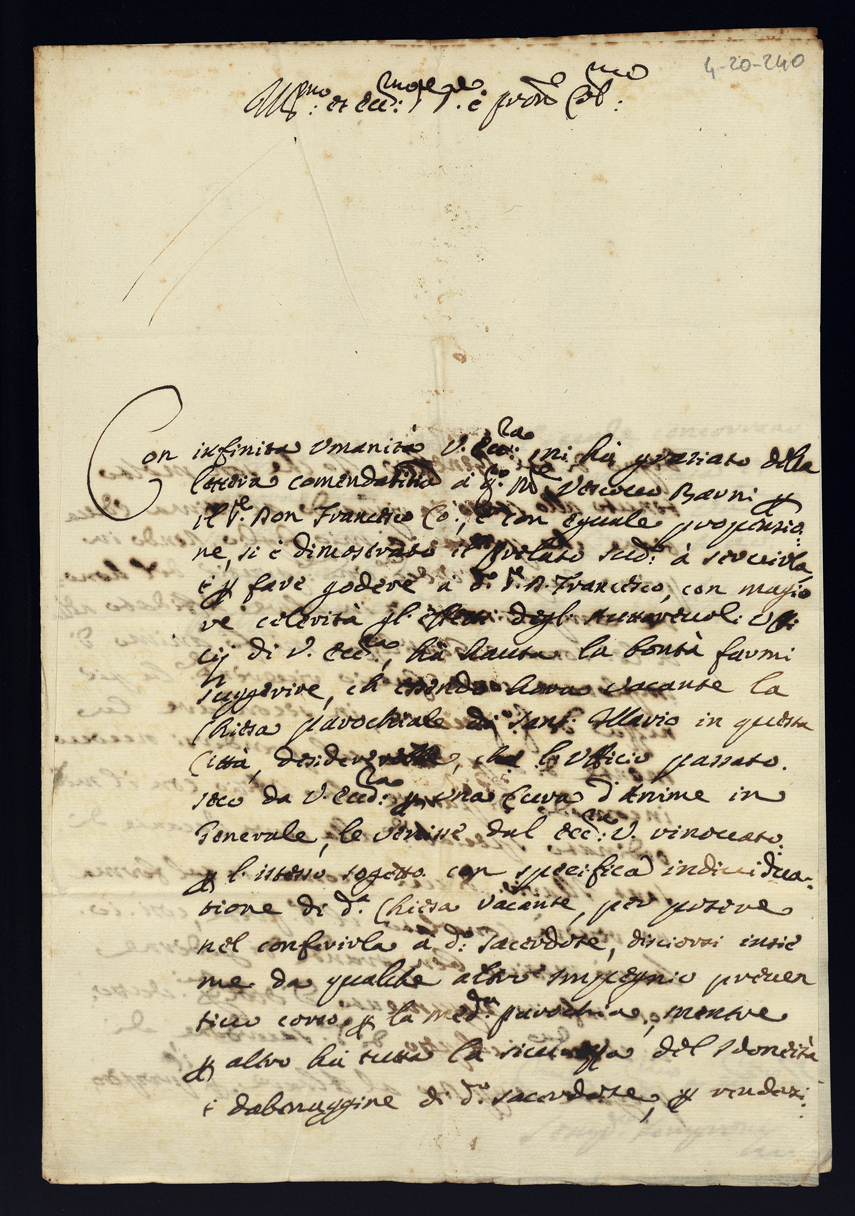 4-20-240
Ill.mo et Ecc.mo Sig.re Sig.re e pron Col.mo
Con infinita Umanità V. Ecc.za mi hà graziato della
lettera comendatitia à q.o M.r Vescovo Barni p
il S.r Don Francesco Co:, e con eguale propensio
ne, si è dimostrato il Prelato sud.o à servirla,
e p fare godere a d.o S.r D. Francesco, con magio
re celerità gl'effetti degl'Autorevoli Uffi
cij di V. Ecc.za, hà hauta la bontà farmi
suggerire, ch'essendo hora vacante la
Chiesa parochiale di Sant' Illario in questa
Città, desidererebbe, che l'Ufficio passato
seco da V. Ecc.za p una Cura d'Anime in
Generale, le venisse dal Ecc.za V. rinovato
p l'istesso sogetto con specifica individua-
tione di d.a Chiesa vacante, per potere
nel conferirla à d.o Sacerdote, disciorsi insie
me da qualche altro Impegnio preven
tivo corso p la med.ma parochia, mentre
p altro hà tutta la sicurezza del Idoneità
e dabenaggine di d.o Sacerdote, p rendersi